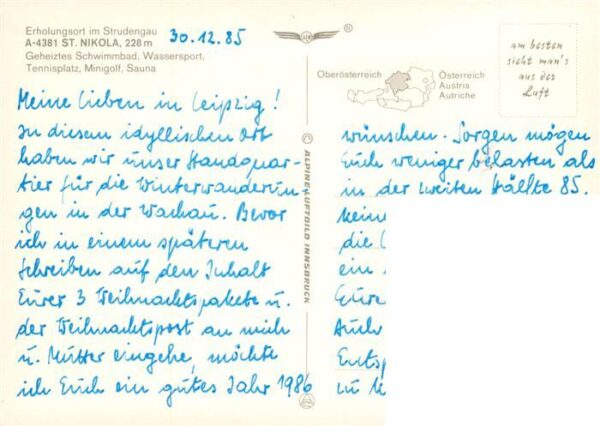 Erholungsort im Strudengau
A-4381 ST. NIKOLA, 228 m
Geheiztes Schwimmbad, Wassersport,
Tennisplatz, Minigolf, Sauna
30.12.85
Meine Lieben in Leipzig!
In diesem idyllischen Ort
haben wir unser Standquar-
tier für die Winterwanderun
gen in der Wachau. Bevor
ich in einem späteren
Schreiben auf den Inhalt
Eurer 3 Weihnachtspakete u.
der Weihnachtspost an mich
u. Mutter eingehe, möchte
ich Euch ein gutes Jahr 1986
ALPINE LUFTBILD INNSBRUCK
Oberösterreich
Österreich
Austria
Autriche
am besten
sieht man's
aus der
Luft
wünschen. Sorgen mögen
Euch weniger belasten als
in der zweiten Hälfte 85.
keine
die
ein
Eure
Auch
Entsp
zu